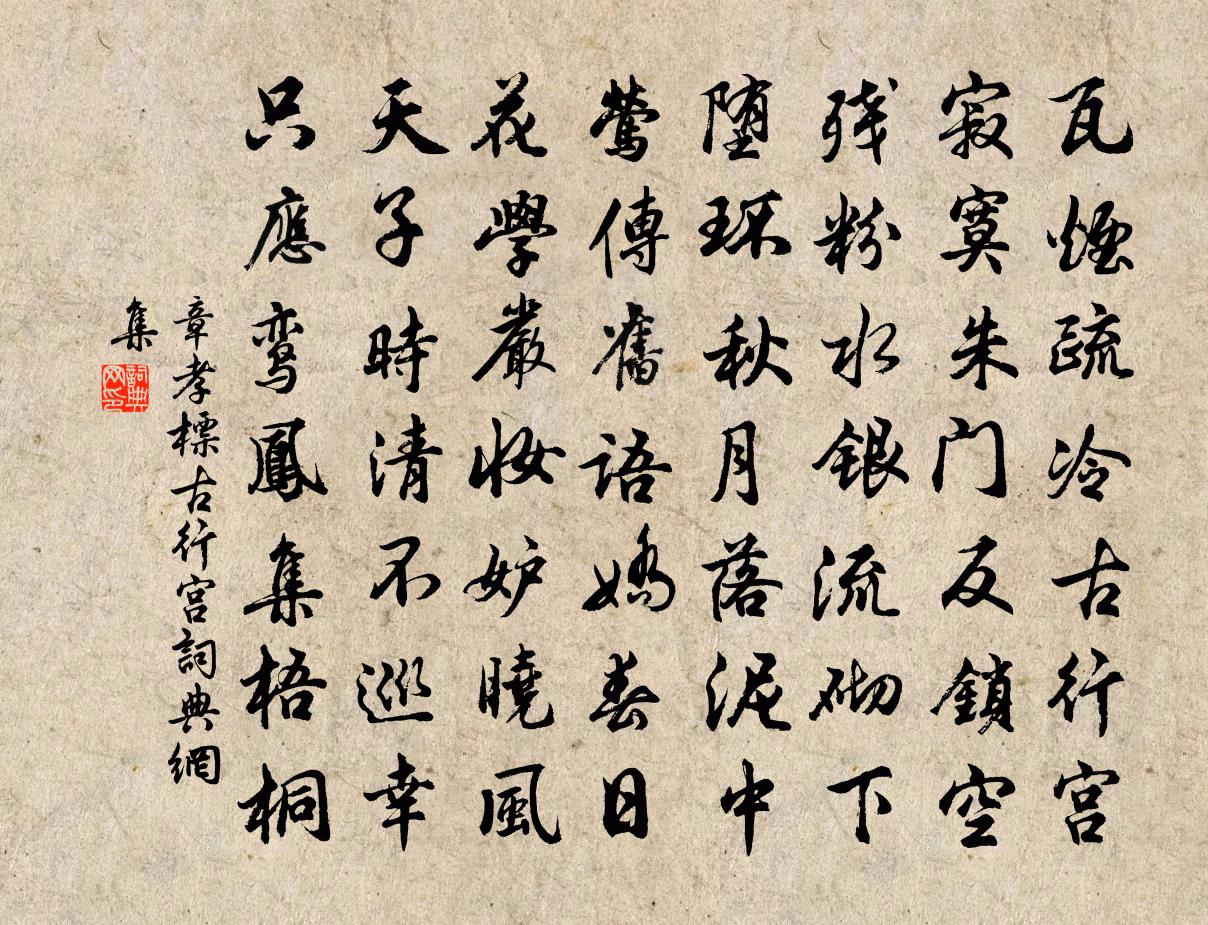 瓦煙疏冷古行宮
寂寞朱门反鎖空
残粉水銀流砌下
堕环秋月落泥中
鶯傳舊語嬌春日
花學嚴妝妒曉風
天子時清不巡幸
只應鸾鳳集梧桐
章孝標古行宮詞典網
集
詞典
网印